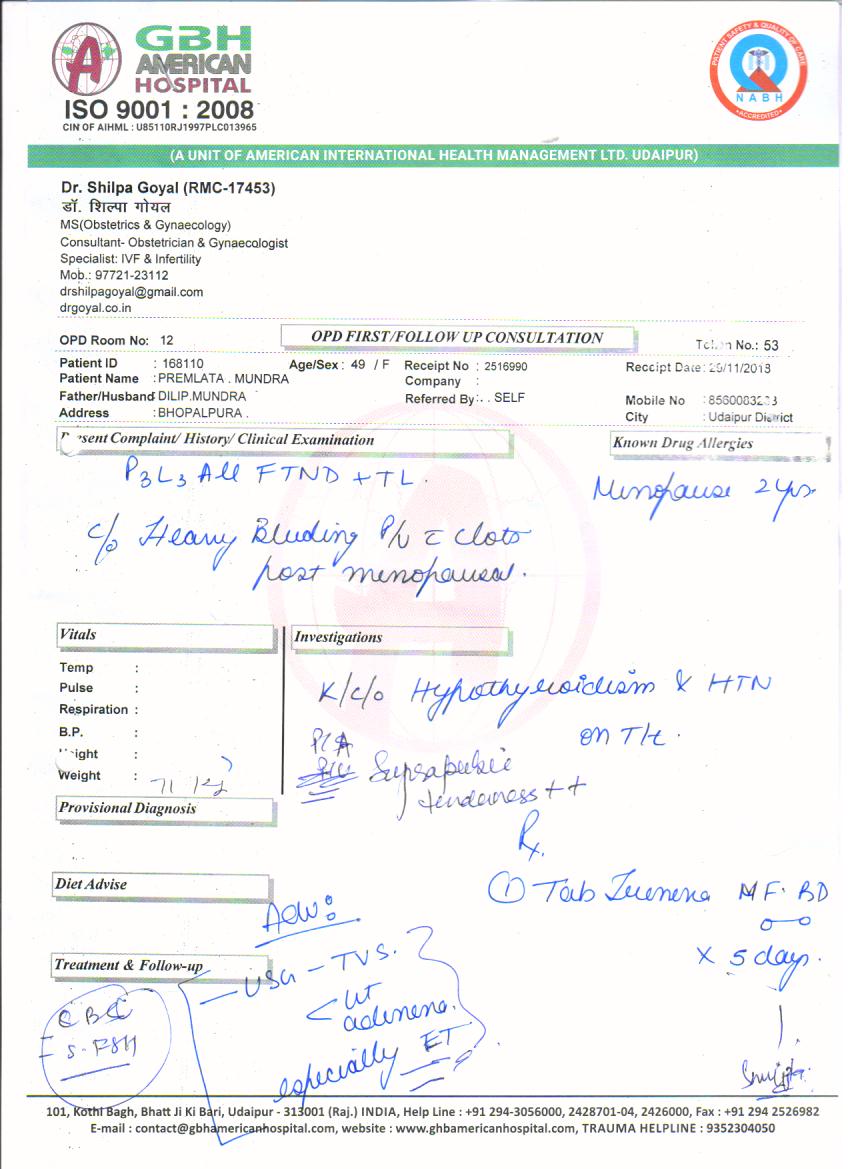 GBH
AMERICAN
HOSPITAL
ISO 9001 : 2008
CIN OF AIHML : U85110RJ1997PLC013965
PATIENT SAFETY & QUALITY OF CARE
NABH
ACCREDITED
(A UNIT OF AMERICAN INTERNATIONAL HEALTH MANAGEMENT LTD. UDAIPUR)
Dr. Shilpa Goyal (RMC-17453)
डॉ. शिल्पा गोयल
MS(Obstetrics & Gynaecology)
Consultant- Obstetrician & Gynaecologist
Specialist: IVF & Infertility
Mob.: 97721-23112
drshilpagoyal@gmail.com
drgoyal.co.in
OPD Room No: 12 OPD FIRST/FOLLOW UP CONSULTATION No.: 53
Patient ID : 168110 Age/Sex : 49 / F Receipt No : 2516990 Receipt Date:
Patient Name : PREMLATA . MUNDRA Company :
Father/Husband DILIP.MUNDRA Referred By: . . SELF Mobile No
Address : BHOPALPURA . City : Udaipur District
Present Complaint/ History/ Clinical Examination Known Drug Allergies
P3L3 All FTND + TL. Menopause 2 yrs.
c/o Heavy Bleeding P/V c̄ clots
post menopausal.
Vitals Investigations
Temp :
Pulse :
Respiration :
B.P. :
Weight : 71 kg
K/c/o Hypothyroidism & HTN
on T/t.
P/A
Suprapubic
tenderness ++
Provisional Diagnosis
Rx.
Diet Advise
① Tab MF. BD
x 5 days.
Adv:
Treatment & Follow-up
- USG - TVS.
< Ut
especially ET
CBC
- S. FSH
101, Kothi Bagh, Bhatt Ji Ki Bari, Udaipur - 313001 (Raj.) INDIA, Help Line : +91 294-3056000, 2428701-04, 2426000, Fax : +91 294 2526982
E-mail : contact@gbhamericanhospital.com, website : www.ghbamericanhospital.com, TRAUMA HELPLINE : 9352304050